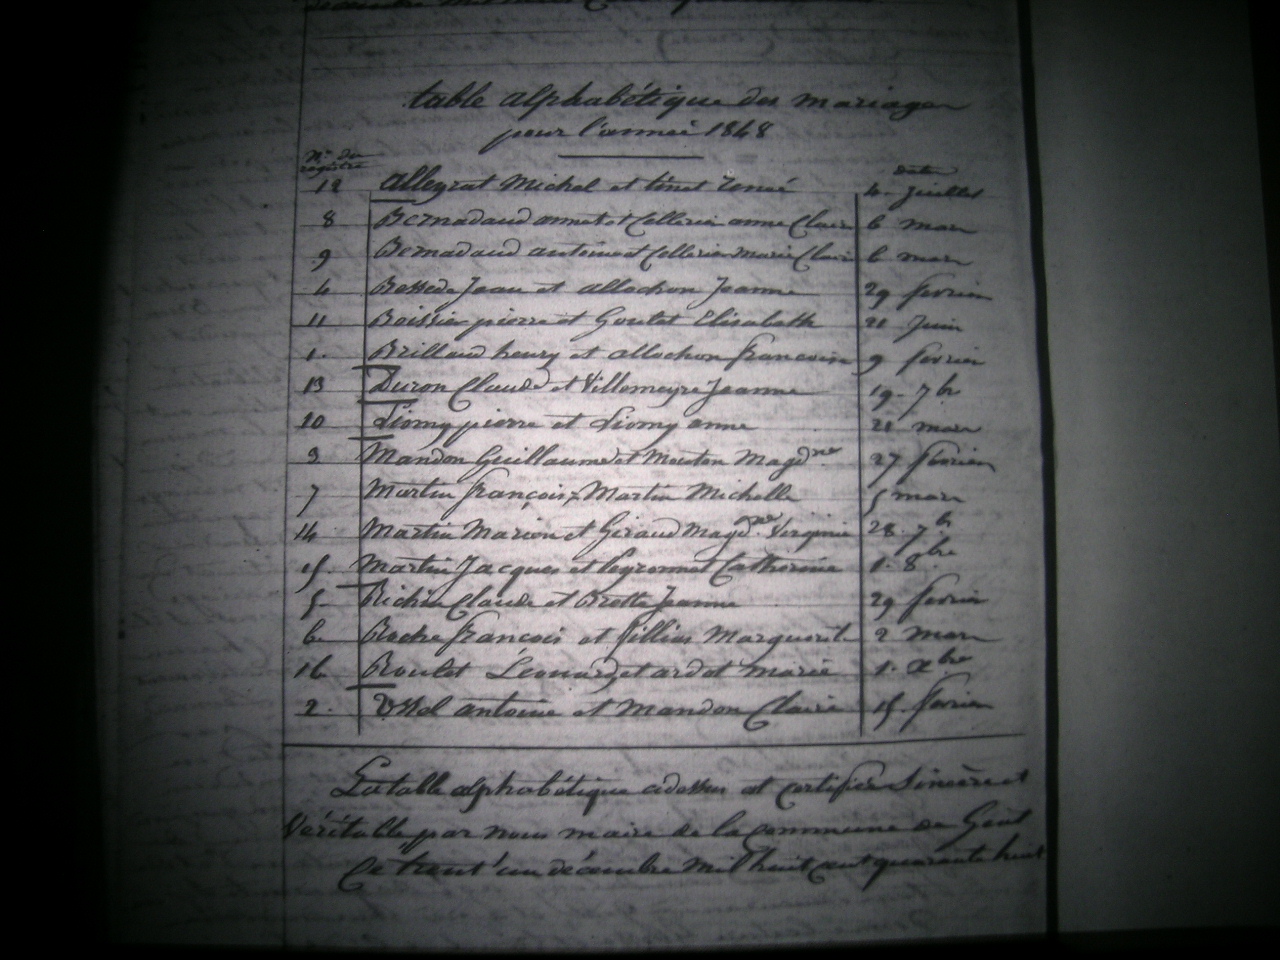 table alphabétique des mariages
pour l'année 1848
N.os du registre
date
12 allegrat Michel et tinet 4 Juillet
8 Bernadaud annet et Collerier anne Claire 6 mars
9 Bernadaud antoine et Collerier marie Claire 6 mars
4 Bessede Jean et allochon Jeanne 29 fevrier
11 Boissier pierre et Goutet Elisabeth 21 Juin
1. Brillaud henry et allochon francoise 9 fevrier
13 Duron Claude et Villemeyre Jeanne 19. 7br
10 Liomy pierre et Liomy anne 21 mars
3 Mandon Guillaume et Mouton Magdne 27 fevrier
7 Martin françois, Martin Michelle 5 mars
14 Martin Marien et Giraud Magdne Virginie 28. 7br
15. Martin Jacques et Peyronnet Catherine 1. 8bre
5 Claude et Brotte Jeanne 29 fevrier
6 Roche françois et fillias Marguerite 2 mars
16 Roulet Léonard et ardet marie 1. Xbre
2. antoine et Mandon Claire 15. fevrier
La table alphabétique cidessus est certifiée Sincère et
Véritable par nous maire de la commune de
Ce trent'un décembre mil huit cent quarante huit